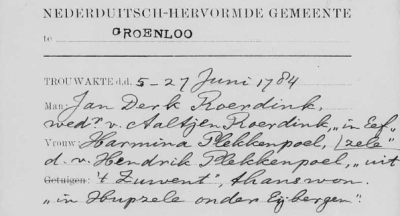 NEDERDUITSCH-HERVORMDE GEMEENTE
te GROENLOO
TROUWAKTE d.d. 5-27 Juni 1784
Man: Jan Derk Roerdink,
wedr v. Aaltjen Roerdink, „in Eef"
Vrouw Harmina Plekkenpoel, /zele"
d. v. Hendrik Plekkenpoel, „uit
Getuigen: 't Zuwent", thans won.
„in Hupzele onder Eybergen".